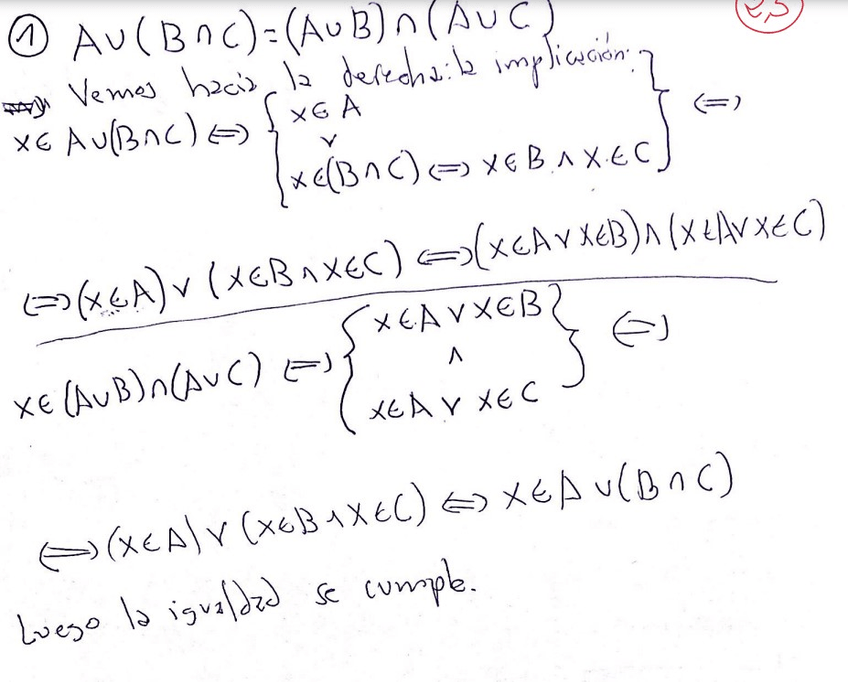 ① A∪(B∩C)=(A∪B)∩(A∪C)
2,5
Vemos hacia la derecha la implicación:
x∈A∪(B∩C) ⇔ { x∈A
∨
x∈(B∩C) ⇔ x∈B ∧ x∈C } ⇔
⇔ (x∈A) ∨ (x∈B ∧ x∈C) ⇔ (x∈A ∨ x∈B) ∧ (x∈A ∨ x∈C)
x∈(A∪B)∩(A∪C) ⇔ { x∈A ∨ x∈B
∧
x∈A ∨ x∈C } ⇔
⇔ (x∈A) ∨ (x∈B ∧ x∈C) ⇔ x∈A∪(B∩C)
Luego la igualdad se cumple.